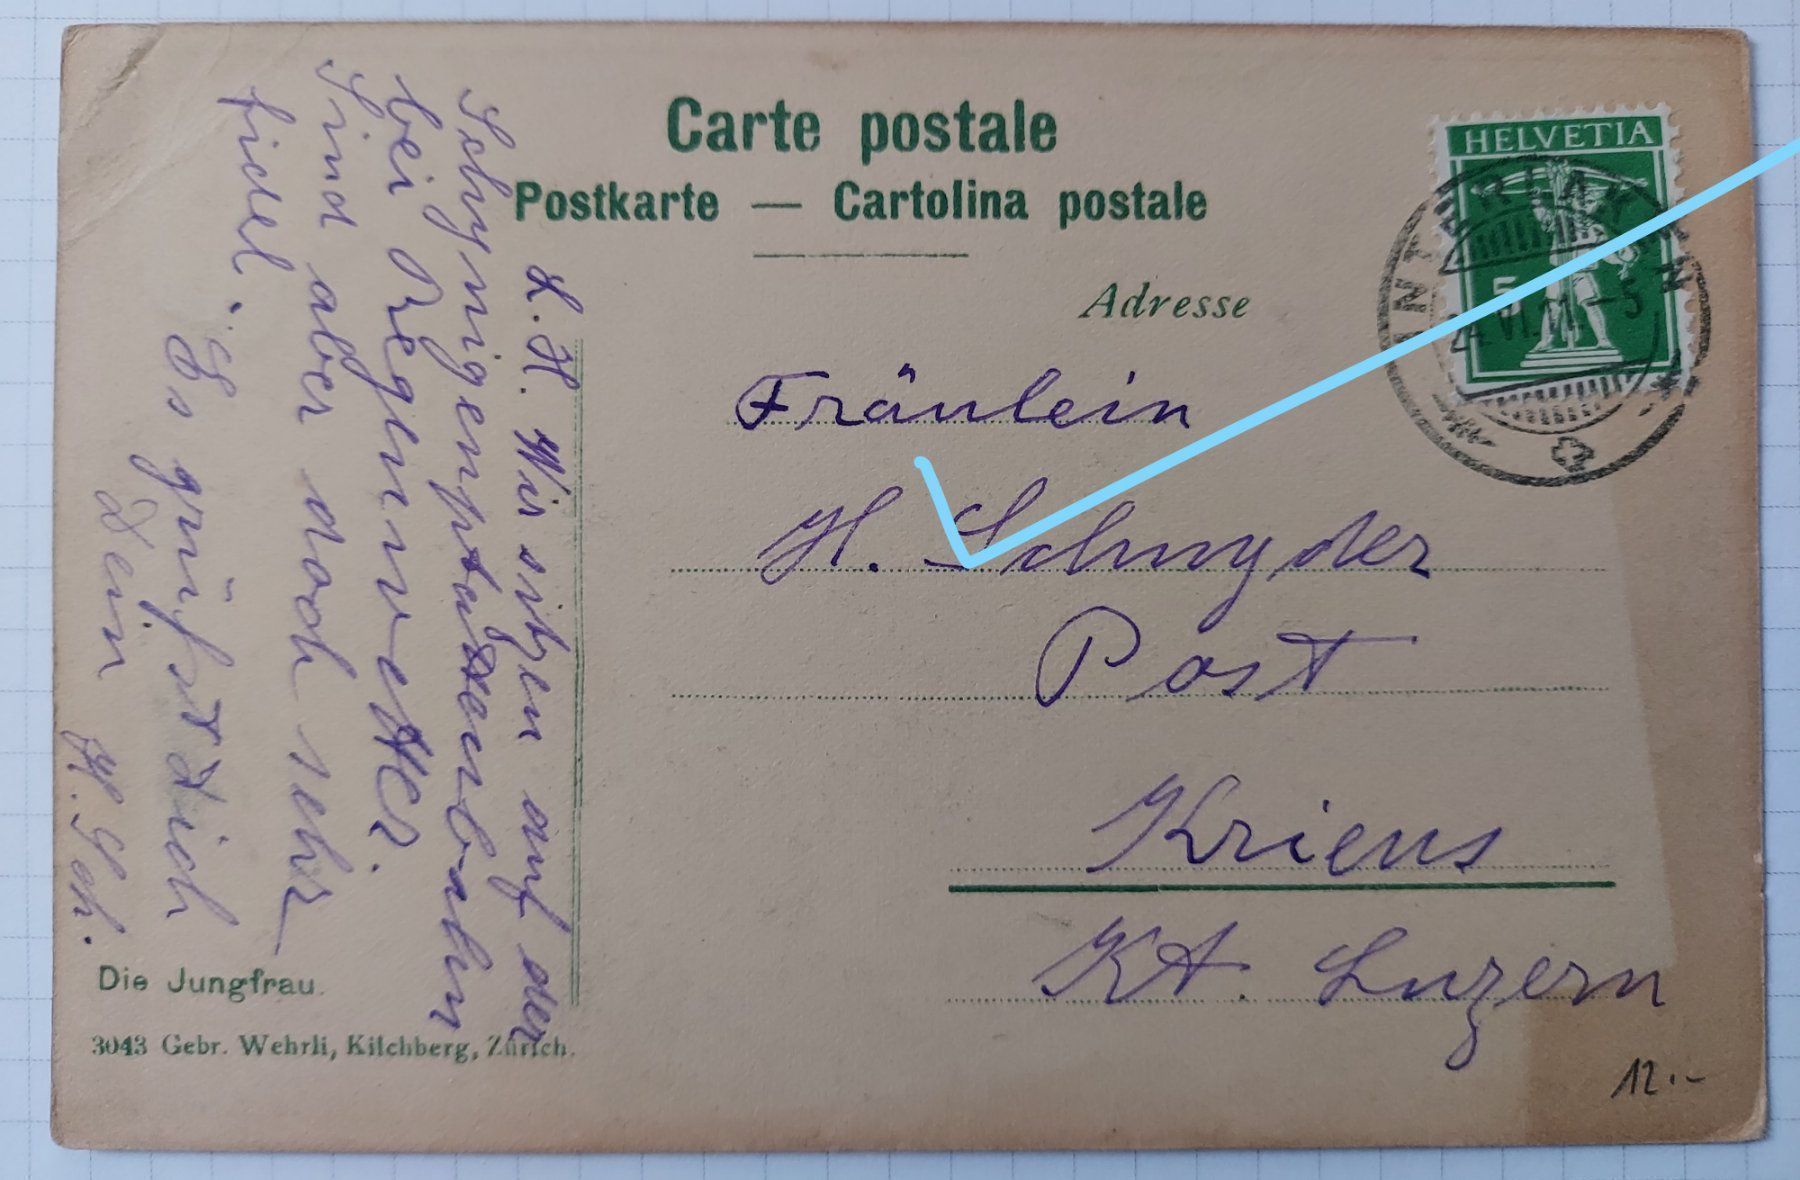 Carte postale
Postkarte — Cartolina postale
Adresse
HELVETIA
5
INTERLAKEN
VI.11.-5
Fräulein
H. Schnyder
Post
Kriens
Kt. Luzern
L. H. Wir sitzen auf der
Schynigenplattenbahn
bei Regenwetter.
Sind aber doch sehr
fidel.
Es grüsst Dich
Dein H. Sch.
Die Jungfrau.
3043 Gebr. Wehrli, Kilchberg, Zürich.
12.-